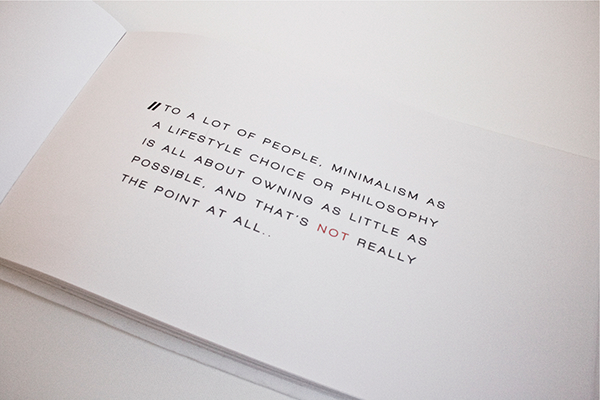 "TO A LOT OF PEOPLE, MINIMALISM AS
A LIFESTYLE CHOICE OR PHILOSOPHY
IS ALL ABOUT OWNING AS LITTLE AS
POSSIBLE, AND THAT'S NOT REALLY
THE POINT AT ALL..